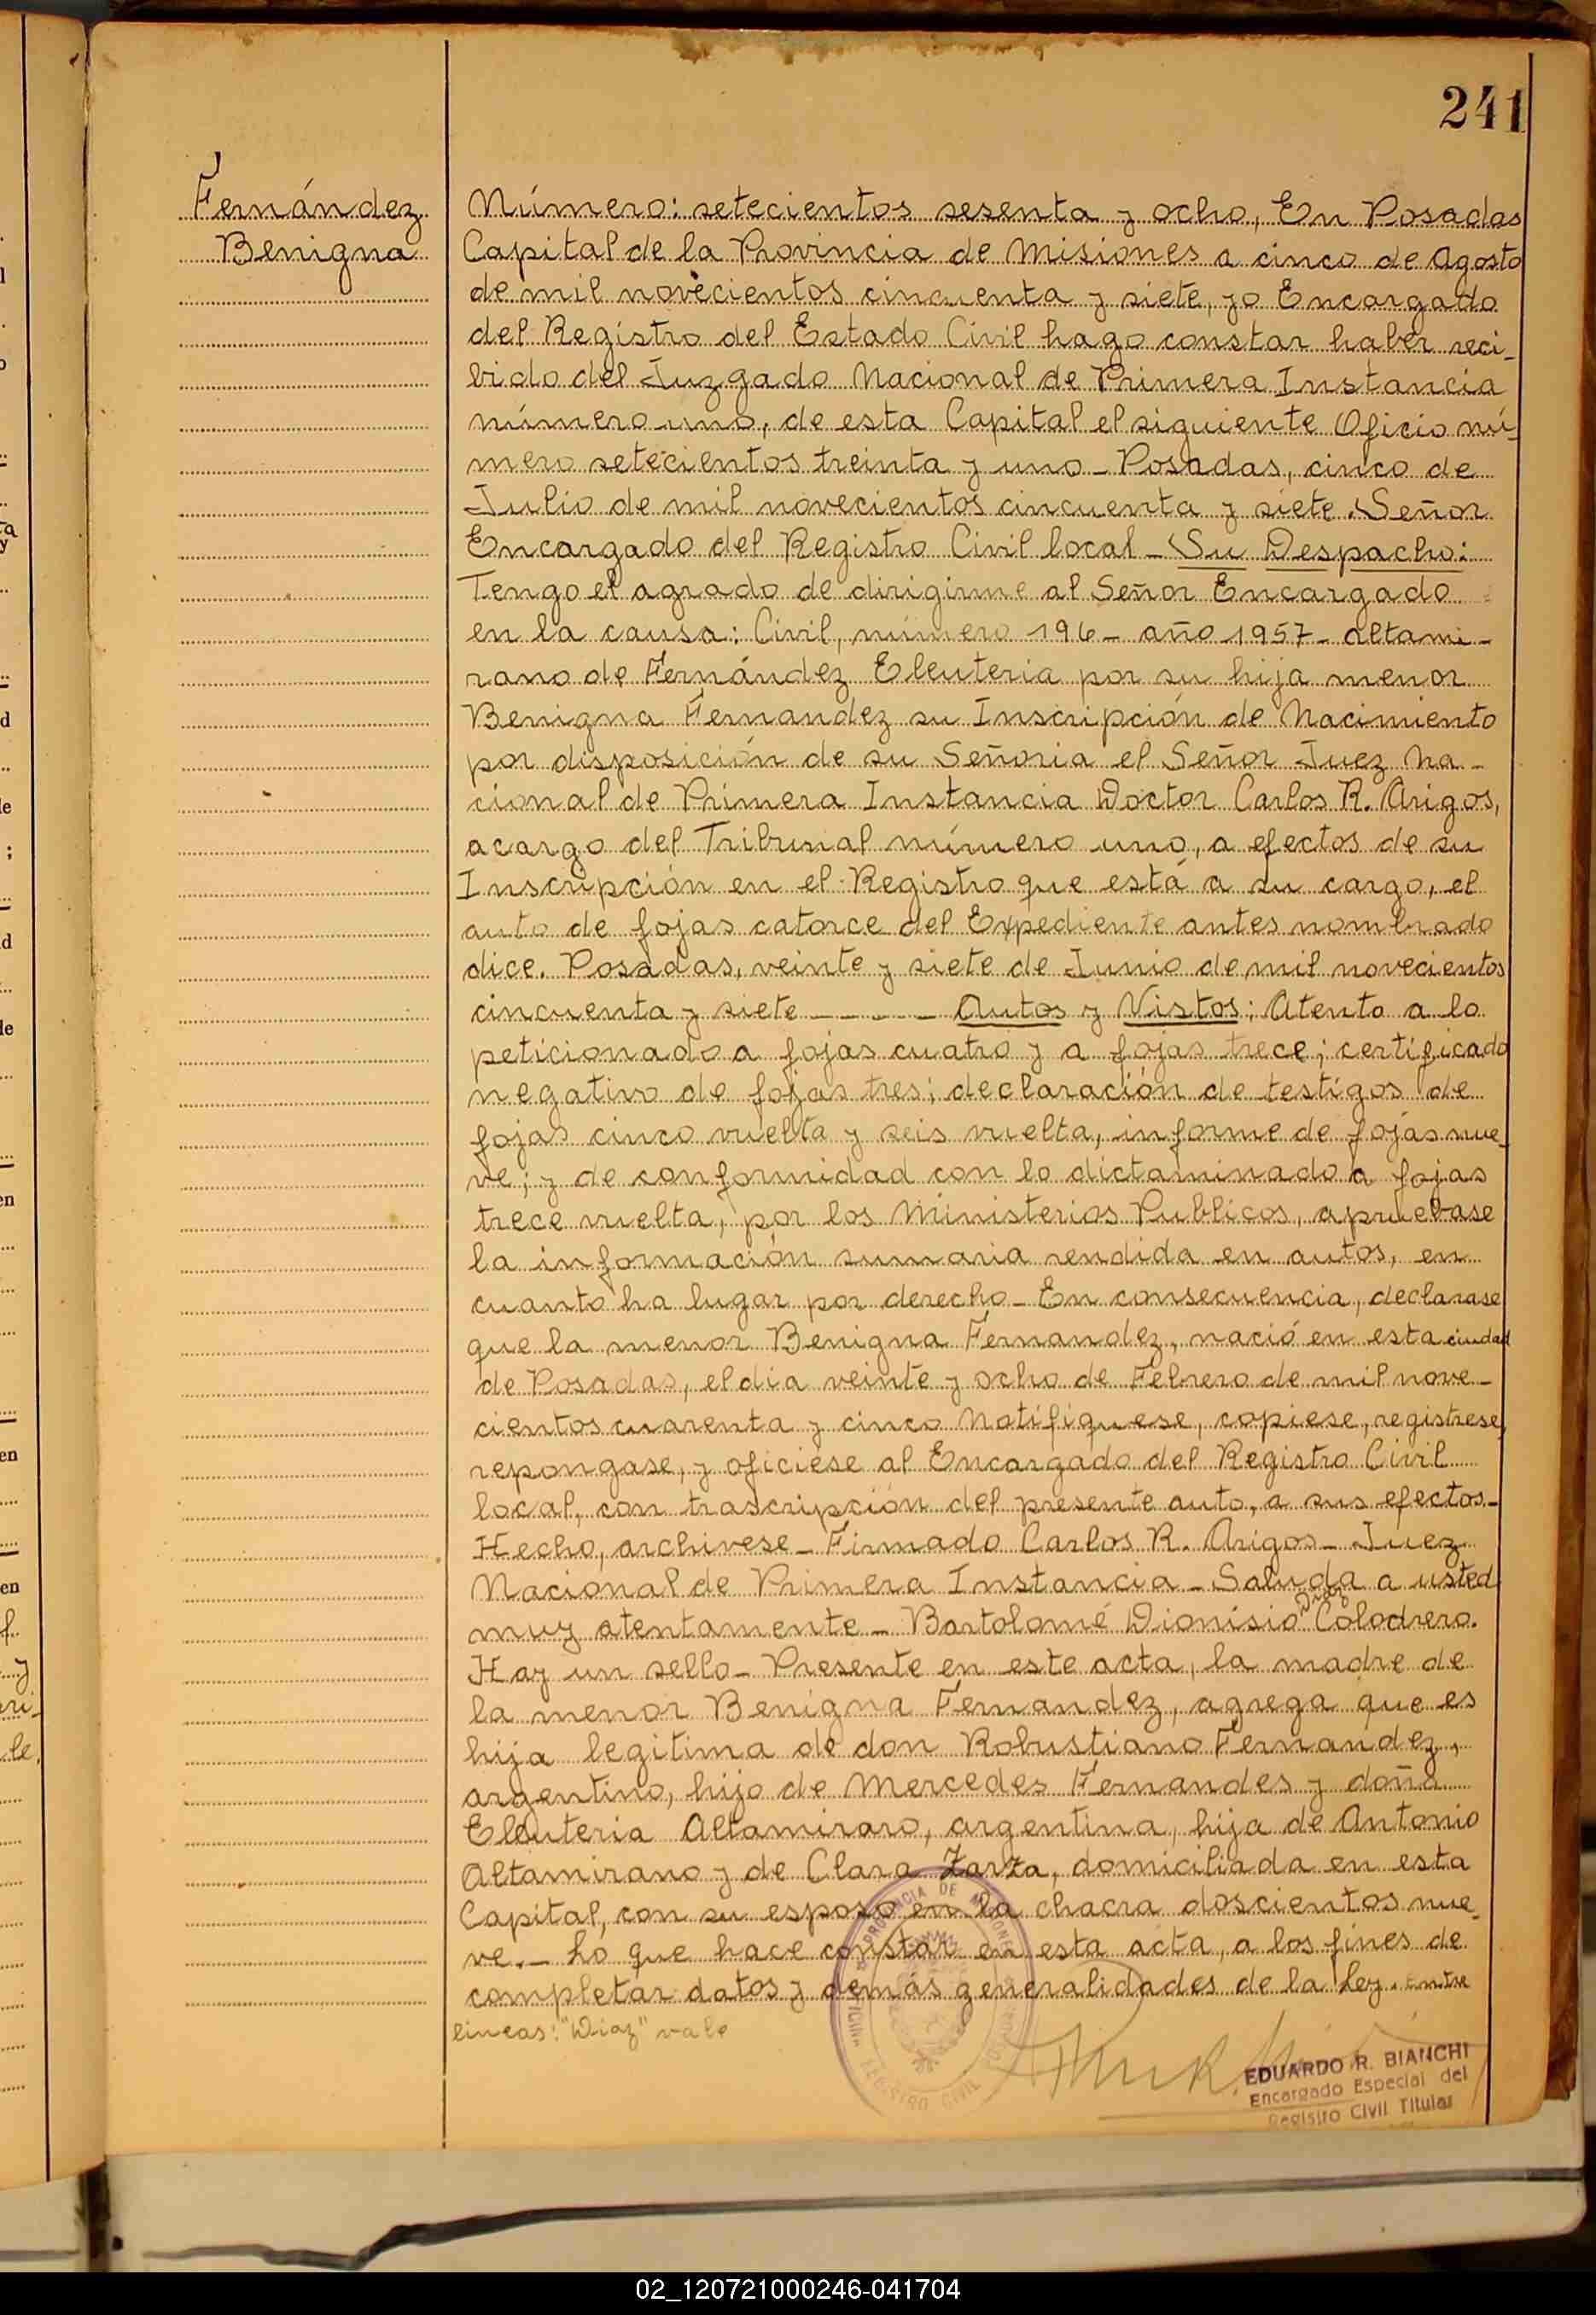 241
Fernández
Benigna
Número: setecientos sesenta y ocho, En Posadas
Capital de la Provincia de Misiones a cinco de Agosto
de mil novecientos cincuenta y siete, yo Encargado
del Registro del Estado Civil hago constar haber reci-
bido del Juzgado Nacional de Primera Instancia
número uno, de esta Capital el siguiente Oficio nú-
mero setecientos treinta y uno - Posadas, cinco de
Julio de mil novecientos cincuenta y siete. Señor
Encargado del Registro Civil local - Su Despacho:
Tengo el agrado de dirigirme al Señor Encargado
en la causa: Civil, número 196 - año 1957 - Altami-
rano de Fernández Eleuteria por su hija menor
Benigna Fernandez su Inscripción de Nacimiento
por disposición de su Señoria el Señor Juez Na-
cional de Primera Instancia Doctor Carlos R. Arigos,
acargo del Tribunal número uno, a efectos de su
Inscripción en el Registro que está a su cargo, el
auto de fojas catorce del Expediente antes nombrado
dice. Posadas, veinte y siete de Junio de mil novecientos
cincuenta y siete - - - - - Autos y Vistos; Atento a lo
peticionado a fojas cuatro y a fojas trece; certificado
negativo de fojas tres; declaración de testigos de
fojas cinco vuelta y seis vuelta, informe de fojas nue-
ve; y de conformidad con lo dictaminado a fojas
trece vuelta, por los Ministerios Publicos, apruebase
la información sumaria rendida en autos, en
cuanto ha lugar por derecho - En consecuencia, declarase
que la menor Benigna Fernandez, nació en esta ciudad
de Posadas, el dia veinte y ocho de Febrero de mil nove-
cientos cuarenta y cinco Notifiquese, copiese, registrese,
repongase, y oficiese al Encargado del Registro Civil
local, con trascripción del presente auto, a sus efectos -
Hecho, archivese - Firmado Carlos R. Arigos - Juez
Nacional de Primera Instancia - Saluda a usted
muy atentamente - Bartolomé Dionisio Diaz Colodrero.
Hay un sello - Presente en este acta, la madre de
la menor Benigna Fernandez, agrega que es
hija legitima de don Robustiano Fernandez,
argentino, hijo de Mercedes Fernandes y doña
Eleuteria Altamirano, argentina, hija de Antonio
Altamirano y de Clara Zarza, domiciliada en esta
Capital, con su esposo en la chacra doscientos nue-
ve. - Lo que hace constar en esta acta, a los fines de
completar datos y demás generalidades de la Ley. Entre
lineas: "Diaz" vale
PROVINCIA DE MISIONES
REGISTRO CIVIL
EDUARDO R. BIANCHI
Encargado Especial del
Registro Civil Titular
02_120721000246-041704